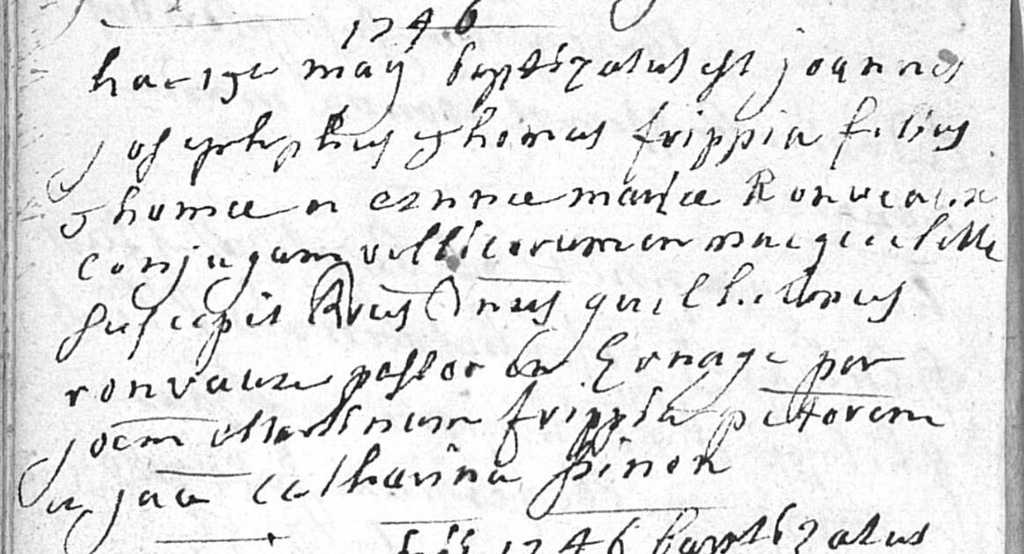 1746
hac 15a maij baptizatus est joannes
josephephus thomas frippia filius
thomae et annae mariae Ronveaux
conjugum villicorum in
suscepit Rdus Dnus guillielmus
ronvaux pastor in Ernage per
joem martinum frippia pictorem
et jna catharina pinon
1746 baptizatus